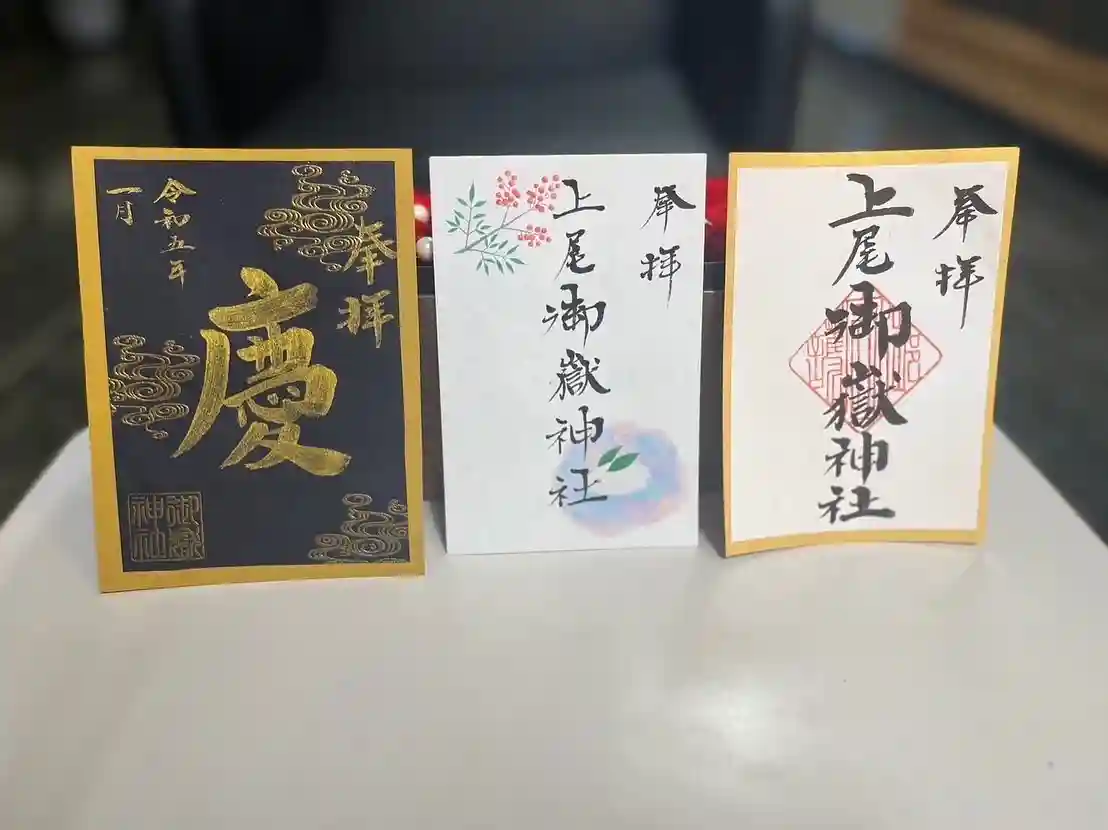 奉拝
慶
令和五年
一月
御嶽
神社
奉拝
上尾御嶽神社
奉拝
上尾御嶽神社